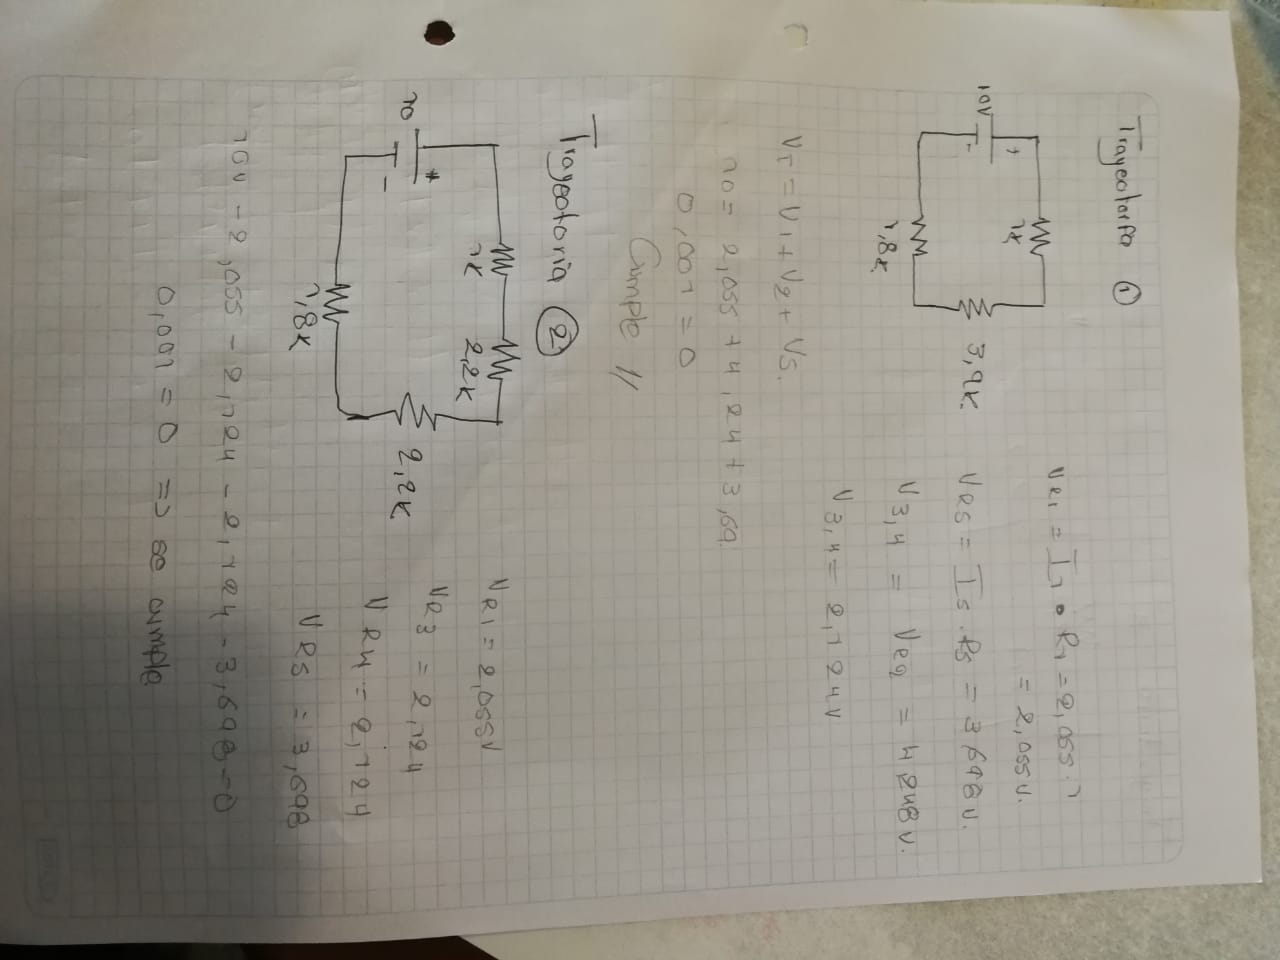 Trayectoria ①
10V
+
-
1k
3,9k.
1,8k.
VR1 = I1 • R1 = 2,055.1
= 2,055 V.
VR5 = I5 . R5 = 3,698 V.
V3,4 = VR2 = 4,248 V.
V3,4 = 2,124 V
VT = V1 + V2 + V5.
10 = 2,055 + 4,24 + 3,69.
0,001 = 0
Cumple //
Trayectoria ②
10
+
-
1k
2,2k
2,2k
1,8k
VR1 = 2,055V
VR3 = 2,124
VR4 = 2,124
VR5 = 3,698
10V - 2,055 - 2,124 - 2,124 - 3,698 = 0
0,001 = 0 => se cumple